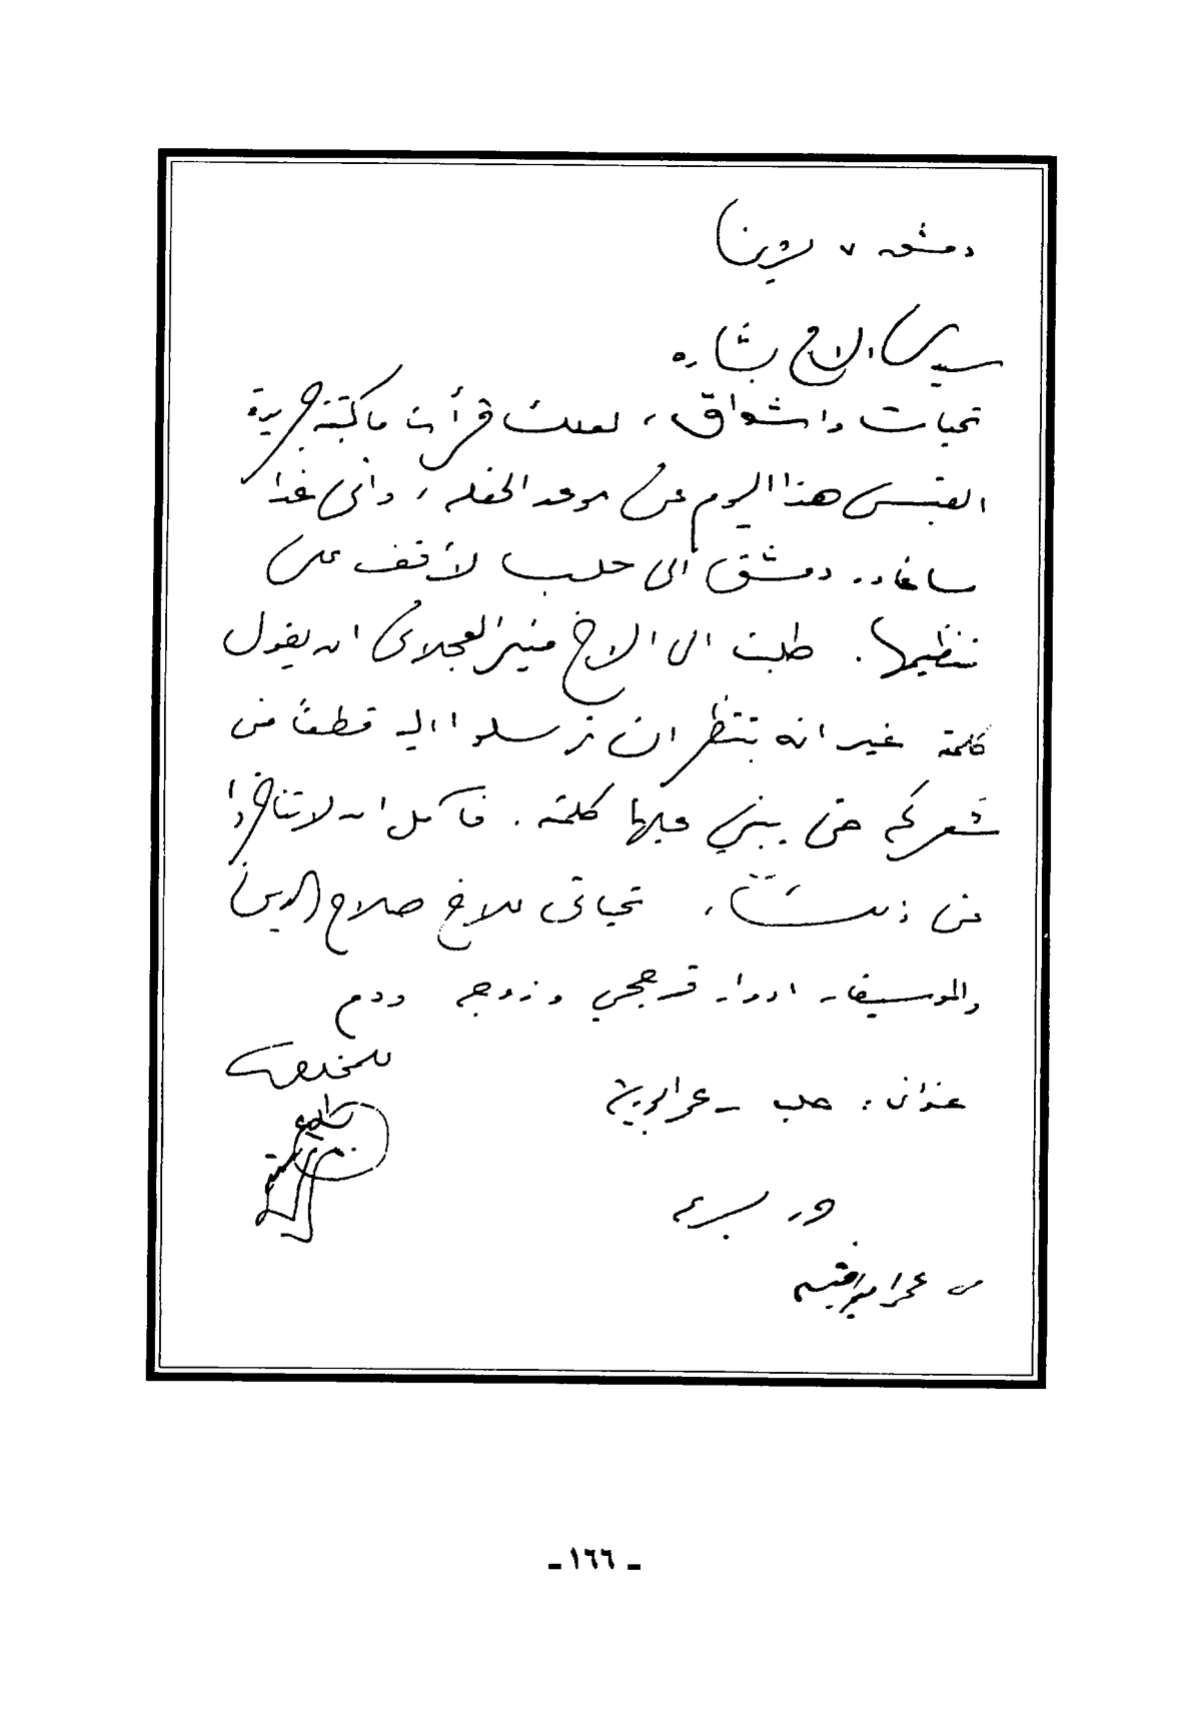 دمشق ٧ تشرين
سيدي الاخ بشاره
تحيات واشواق ، لعلك قرأت ما كتبته جريدة
القبس هذا اليوم عن موعد الحفله ، واني غدا
ساغادر دمشق الى حلب لأقف على
تنظيمها . طلبت الى الاخ منير العجلاني ان يقول
كلمة غير انه ينتظر ان ترسلوا اليه قطعاً من
شعركم حتى يبني عليها كلمته . فآمل ان لا تتأخروا
عن ذلك ، تحياتي للاخ صلاح الدين
والموسيقار ادوار قرمجي وزوجه ودم
للمخلص
عنواني : حلب - عمر ابو ريشة
عمر ابو ريشة
- ١٦٦ -